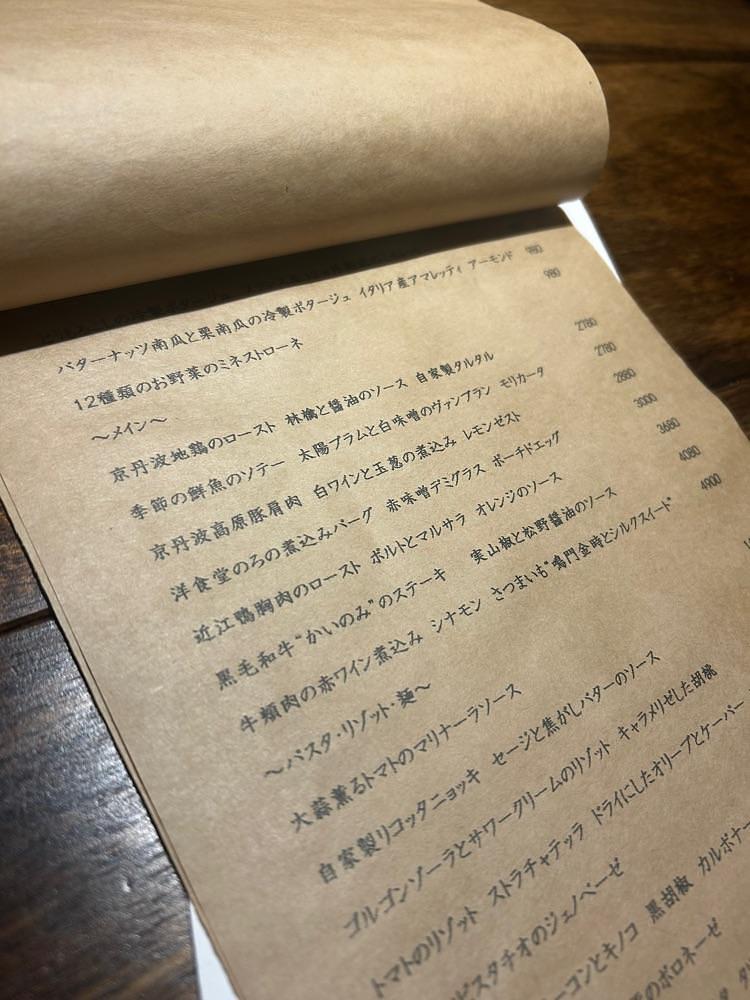 バターナッツ南瓜と栗南瓜の冷製ポタージュ イタリア産アマレッティ アーモンド 980
12種類のお野菜のミネストローネ 980
～メイン～
京丹波地鶏のロースト 林檎と醤油のソース 自家製タルタル 2780
季節の鮮魚のソテー 太陽プラムと白味噌のヴァンブラン モリカータ 2780
京丹波高原豚肩肉 白ワインと玉葱の煮込み レモンゼスト 2880
洋食堂のろの煮込みバーグ 赤味噌デミグラス ポーチドエッグ 3000
近江鴨胸肉のロースト ポルトとマルサラ オレンジのソース 3680
黒毛和牛“かいのみ”のステーキ 実山椒と松野醤油のソース 4080
牛頬肉の赤ワイン煮込み シナモン さつまいも“鳴門金時とシルクスイート” 4900
～パスタ・リゾット・麺～
大蒜薫るトマトのマリナーラソース
自家製リコッタニョッキ セージと焦がしバターのソース
ゴルゴンゾーラとサワークリームのリゾット キャラメリゼした胡桃
トマトのリゾット ストラチャテッラ ドライにしたオリーブとケーパー
ピスタチオのジェノベーゼ
ーコンとキノコ 黒胡椒 カルボナー
のボロネーゼ